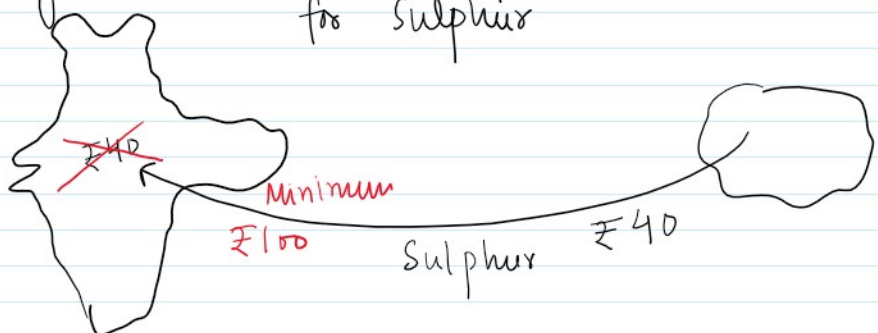 for Sulphur
₹40
Minimum
₹100
Sulphur
₹40